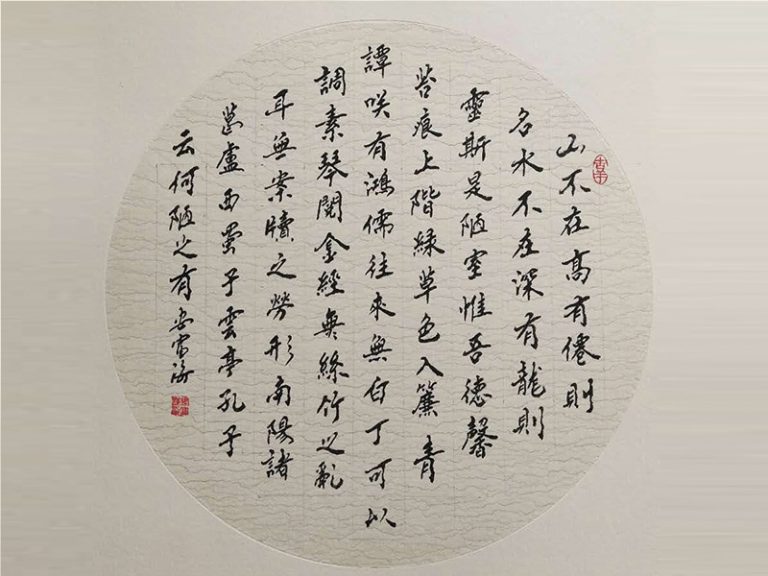 山不在高有僊則
名水不在深有龍則
靈斯是陋室惟吾德馨
苔痕上階緑草色入簾青
譚咲有鴻儒往來無白丁可以
調素琴閱金經無絲竹之亂
耳無案牘之勞形南陽諸
葛盧西蜀子雲亭孔子
云何陋之有